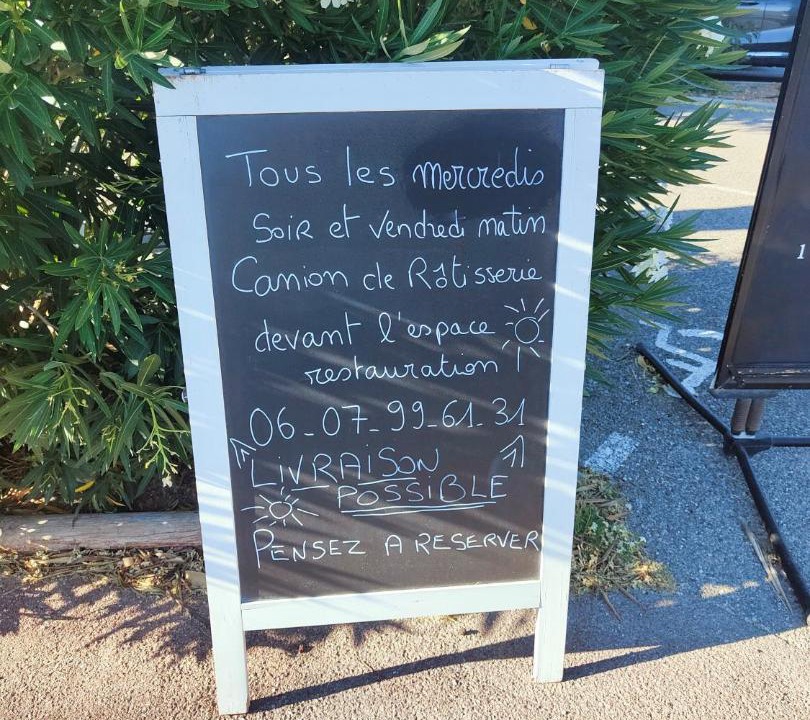 Tous les mercredis
Soir et vendredi matin
Camion de Rôtisserie
devant l'espace
restauration
06-07-99-61-31
LIVRAISON
POSSIBLE
PENSEZ A RESERVER
1